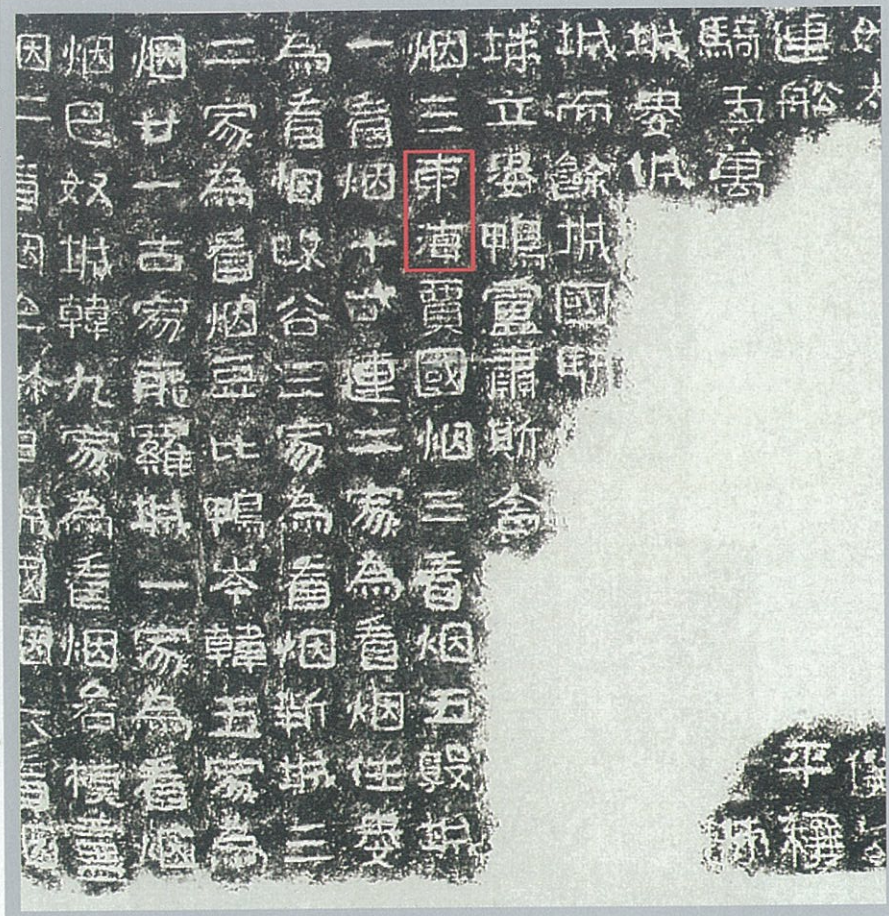 連船平穰
騎五萬
城婁城
城而餘城國
城立婁鴨盧肅斯舍
烟三東海賈國烟三看烟五敦城
一看烟十古連二家為看烟住婁
為看烟谷三家為看烟新城三
二家為看烟豆比鴨岑韓五家為
烟廿一古家能羅城一家為看烟
烟巴奴城韓九家為看烟各模盧